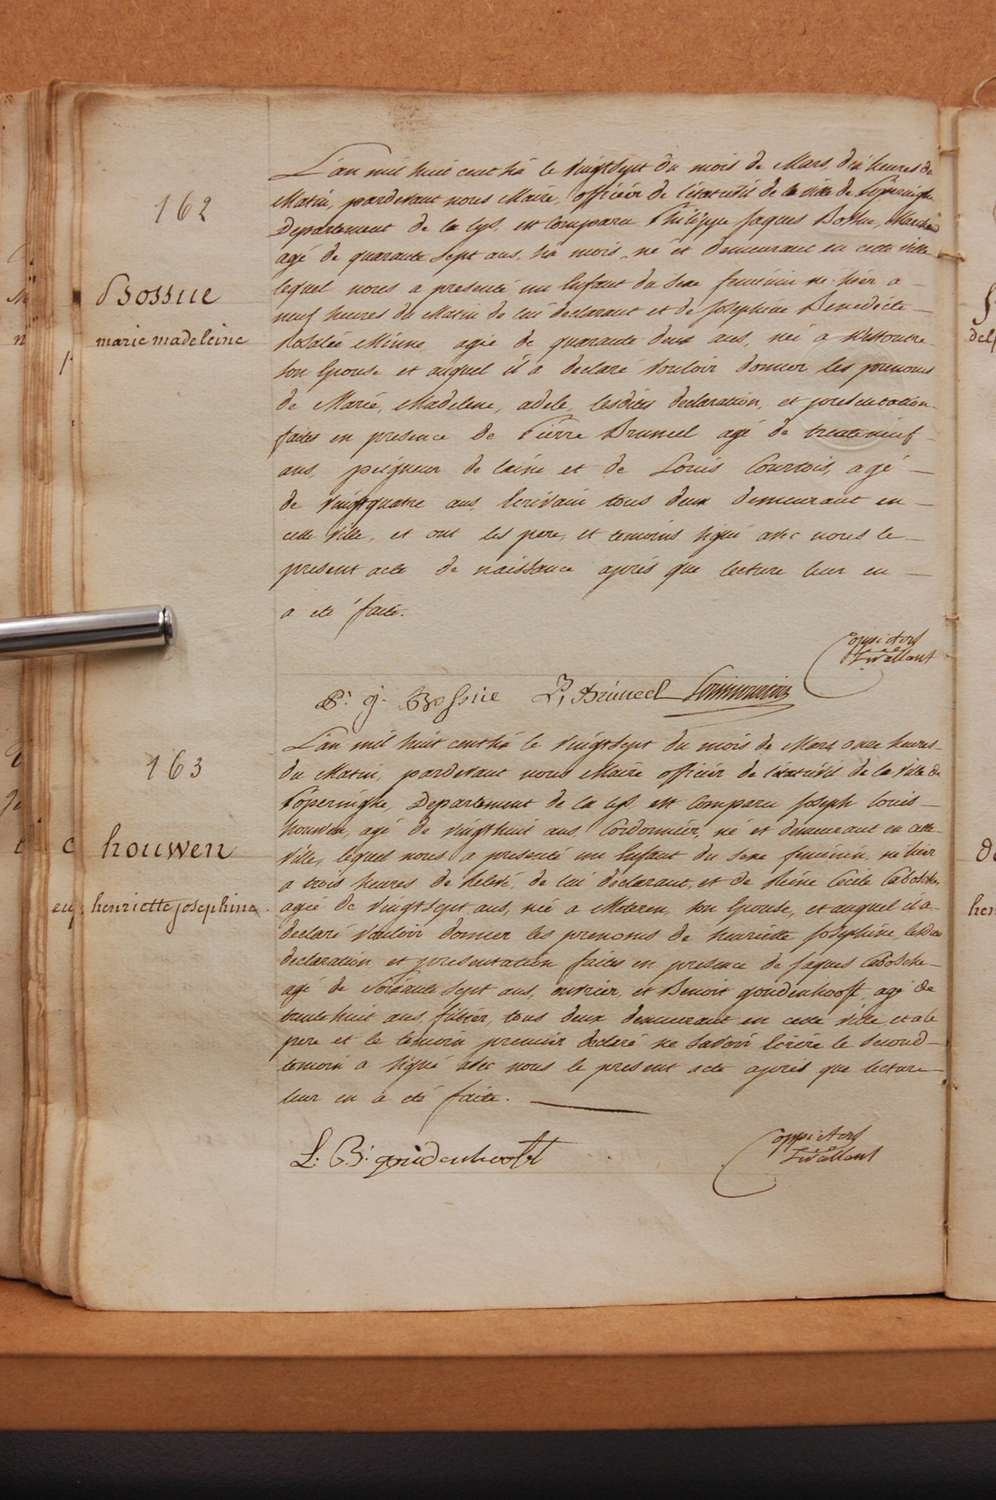 162
Bossue
marie madeleine
L'an mil huit cent six le vingt sept du mois de Mars, dix heures du
Matin, pardevant nous Maire, officier de l'état civil de la ville de Poperinghe
Departement de la Lys, est comparu Philippe Jaques Bossue, Marchand
agé de quarante sept ans, six mois, né et demeurant en cette ville
lequel nous a presenté un Enfant du sexe feminin né hier a
neuf heures du Matin de lui declarant et de Josephine Benedicte
Rosalie Minne, agée de quarante deux ans, née a Westoutre
son Epouse et auquel il a declaré vouloir donner les prenoms
de Marie, Madelene, adele, lesdites declaration, et presentation
faites en presence de Pierre Bruneel agé de trenteneuf
ans, peigneur de laine et de Louis Courtois, agé
de vingtquatre ans Ecrivain tous deux demeurant en
cette ville, et ont les pere, et temoins signé avec nous le
present acte de naissance après que lecture leur en
a été faite.
P. j. Bossue P, Bruneel
163
houwen
henriette josephine
L'an mil huit cent six le vingt sept du mois de Mars onze heures
du Matin, pardevant nous Maire officier de l'état civil de la ville de
Poperinghe, Departement de la Lys est comparu Joseph Louis
houwen, agé de vingthuit ans Cordonnier, né et demeurant en cette
ville, lequel nous a presenté un Enfant du sexe feminin, né hier
a trois heures de relevé, de lui declarant, et de Reine Cecile Cabotche
agée de vingtsept ans, née a Meteren, son Epouse, et auquel il a
declaré vouloir donner les prenoms de henriette Josephine, lesdites
declaration et presentation faites en presence de Jaques Cabotche
agé de soixante sept ans, ouvrier, et Benoit goudenhooft agé de
trente huit ans, fossier, tous deux demeurant en cette ville, et a le
pere et le temoin premier declaré ne savoir Ecrire le second
temoin a signé avec nous le present acte après que lecture
leur en a été faite.
L: B: goudenhooft